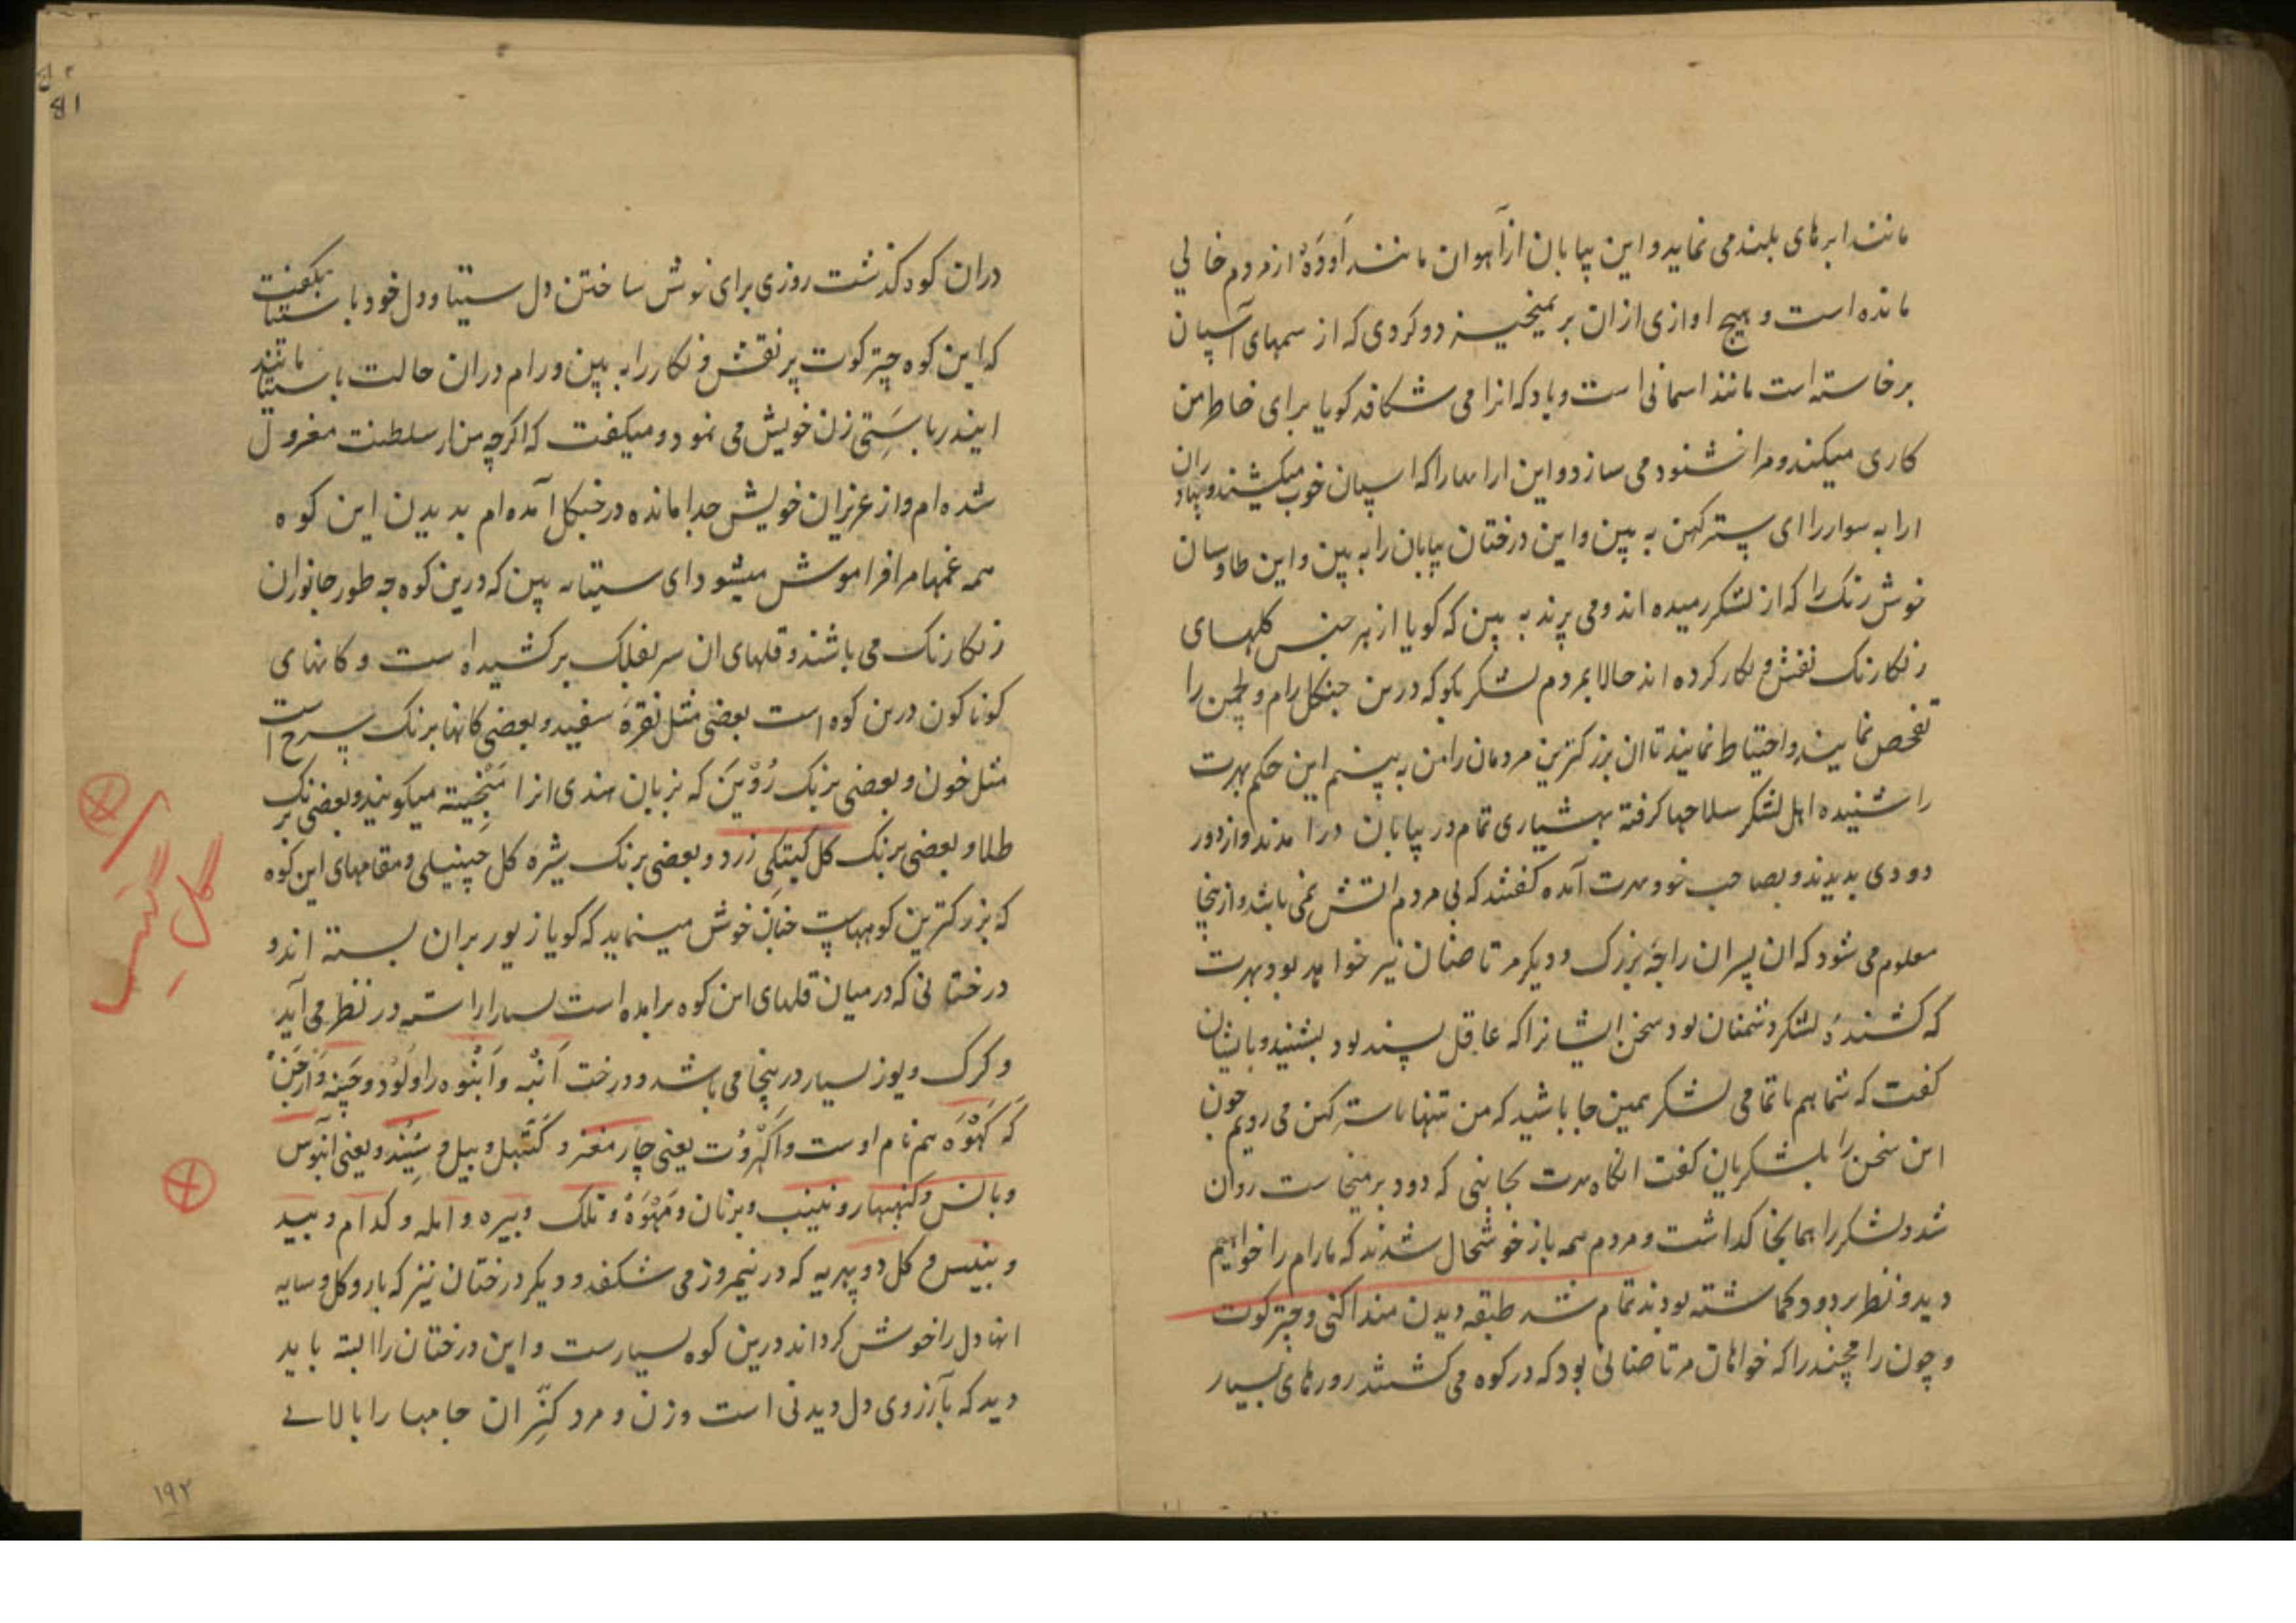 مانند ابرهای بلند می نماید و این بیابان از آهوان مانند اَودَهْ از مردم خالی
مانده است و هیچ اوازی ازان بر نمیخیزد و کردی که از سمهای اسپان
برخاسته است مانند اسمانی است و باد که انرا می شکافد کویا برای خاطر من
کاری میکند و مرا خشنود می سازد و این ارابها را که اسپان خوب میکشند و بهادران
ارابه سوار را ای سترکهن به بین و این درختان بیابان را به بین و این طاوسان
خوش رنک را که از لشکر رمیده اند و می پرند به بین که کویا از هر جنس کلهای
رنکارنک نقش و نکار کرده اند حالا بمردم لشکر بکو که درین جنکل رام و لچمن را
تفحص نمایند و احتیاط نمایند تا ان بزرکترین مردمان را من به بینم این حکم بهرت
را شنیده اهل لشکر سلاحها کرفته بهشیاری تمام در بیابان درامدند و از دور
دودی بدیدند و بصاحب خود بهرت آمده کفتند که بی مردم اتش نمی باشد و ازینجا
معلوم می شود که ان پسران راجهٔ بزرک و دیکر مرتاضان نیز خواهد بود بهرت
که کشندهٔ لشکر دشمنان بود سخن ایشانرا که عاقل پسند بود بشنید و بایشان
کفت که شما هم با تمامی لشکر همین جا باشید که من تنها با سترکهن می رویم چون
این سخن را بلشکریان کفت انکاه بهرت بجانبی که دود برمیخاست روان
شد و لشکر را همانجا کذاشت و مردم همه باز خوشحال شدند که ما رام را خواهیم
دید و نظر بر دود کماشته بودند تمام شد طبقه دیدن منداکنی و چترکوت
و چون رامچند را که خواهان مرتاضانی بود که در کوه می کشتند روزهای بسیار
دران کوه کذشت روزی برای خوش ساختن دل سیتا و دل خود با سیتا بکفت
که این کوه چترکوت پر نقش و نکار را به بین و رام دران حالت با سیتا مانند
ایندر با سَتِی زن خویش می نمود و میکفت که اکرچه من از سلطنت معزول
شده ام و از عزیزان خویش جدا مانده در جنکل آمده ام بدیدن این کوه
همه غمها مرا فراموش میشود ای سیتا به بین که درین کوه چه طور جانوران
رنکارنک می باشند و قلهای ان سر بفلک برکشیده است و کانهای
کوناکون درین کوه است بعضی مثل نقرهٔ سفید و بعضی کانها برنک سرخ است
مثل خون و بعضی برنک رُوْیَن که بزبان هندی انرا مَنْجِیته میکویند و بعضی برنک
طلا و بعضی برنک کل کیتکی زرد و بعضی برنک شیرهٔ کل چینیلی و مقامهای این کوه
که بزرکترین کوههاست چنان خوش مینماید که کویا زیور بران بسته اند و
درختانی که در میان قلهای این کوه برامده است بسیار اراسته در نظر می آید
و کرک و یوز بسیار درینجا می باشد و درخت اَنْبه و اَنْبُوه را و لُوْد و چَنِه و اَرجَنْ
که کَهْوَه هم نام اوست و اَکْهرُوْت یعنی چارمغز و کَتْهَل و بیل و سِنید و یعنی ابنوس
و بانس و کنبهار و نینب و برنان و مَهْوَهْ و تلک و بیره و امله و کدام و بید
و بنیس و کل دوپهریه که در نیمروز می شکفد و دیکر درختان نیز که بار و کل و سایه
انها دل را خوش کرداند درین کوه بسیارست و این درختان را البته باید
دید که بآرزوی دل دیدنی است و زن و مرد کِنَّران جامها را بالای
کل
۱۹۲